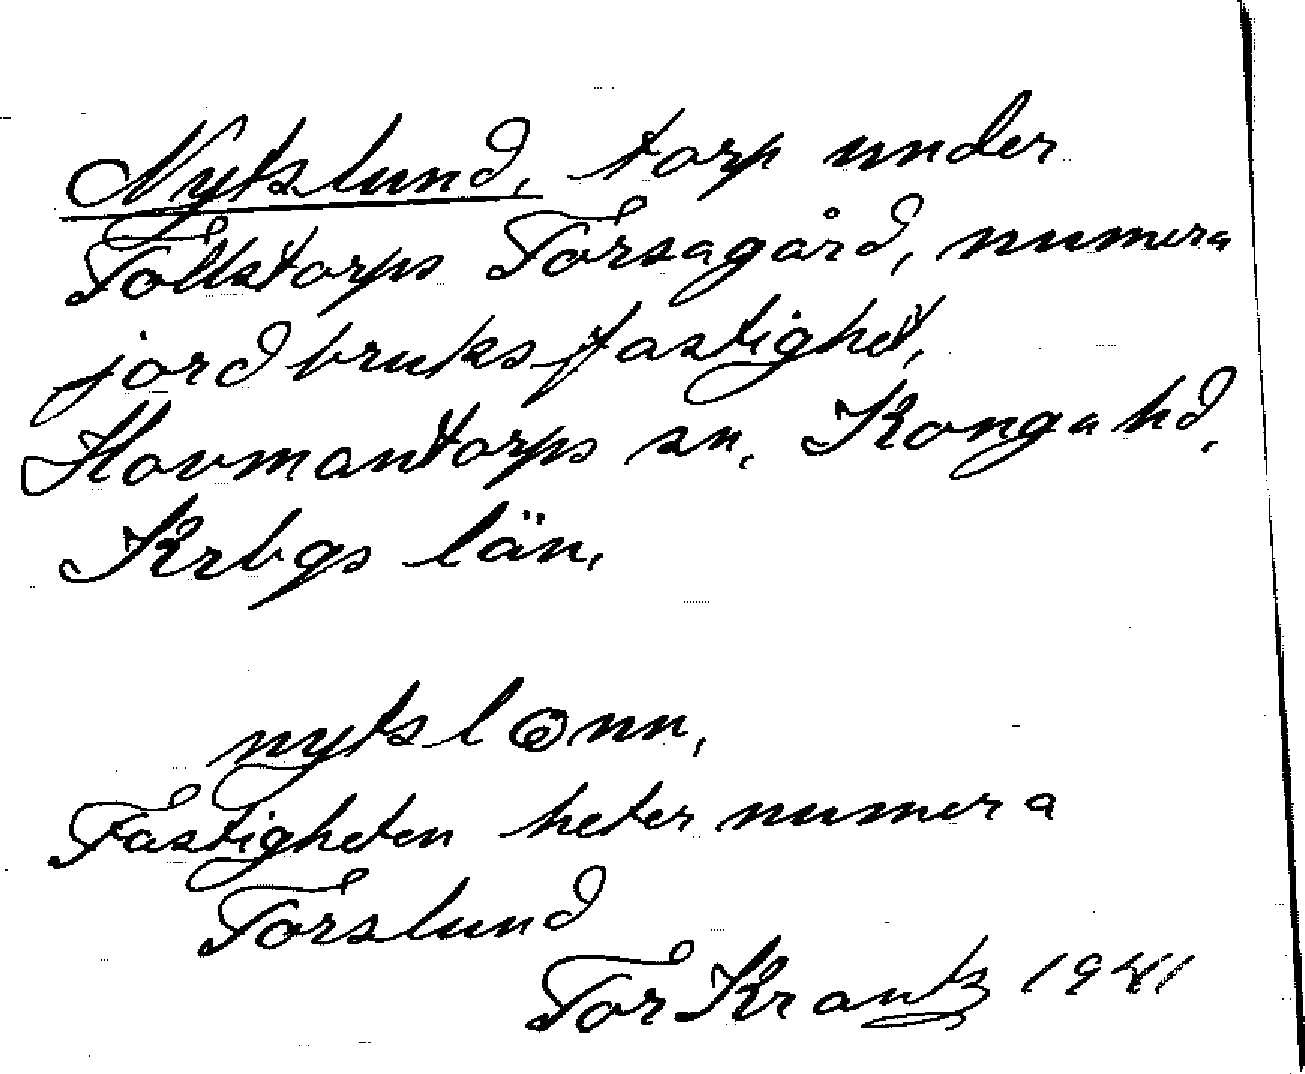 Nykslund, torp under
Tollstorps Torsagård, numera
jordbruksfastighet,
Hovmantorps sn, Konga hd,
Krbgs län.
nykslɵnn,
Fastigheten heter numera
Torslund
Tor Krantz 1941